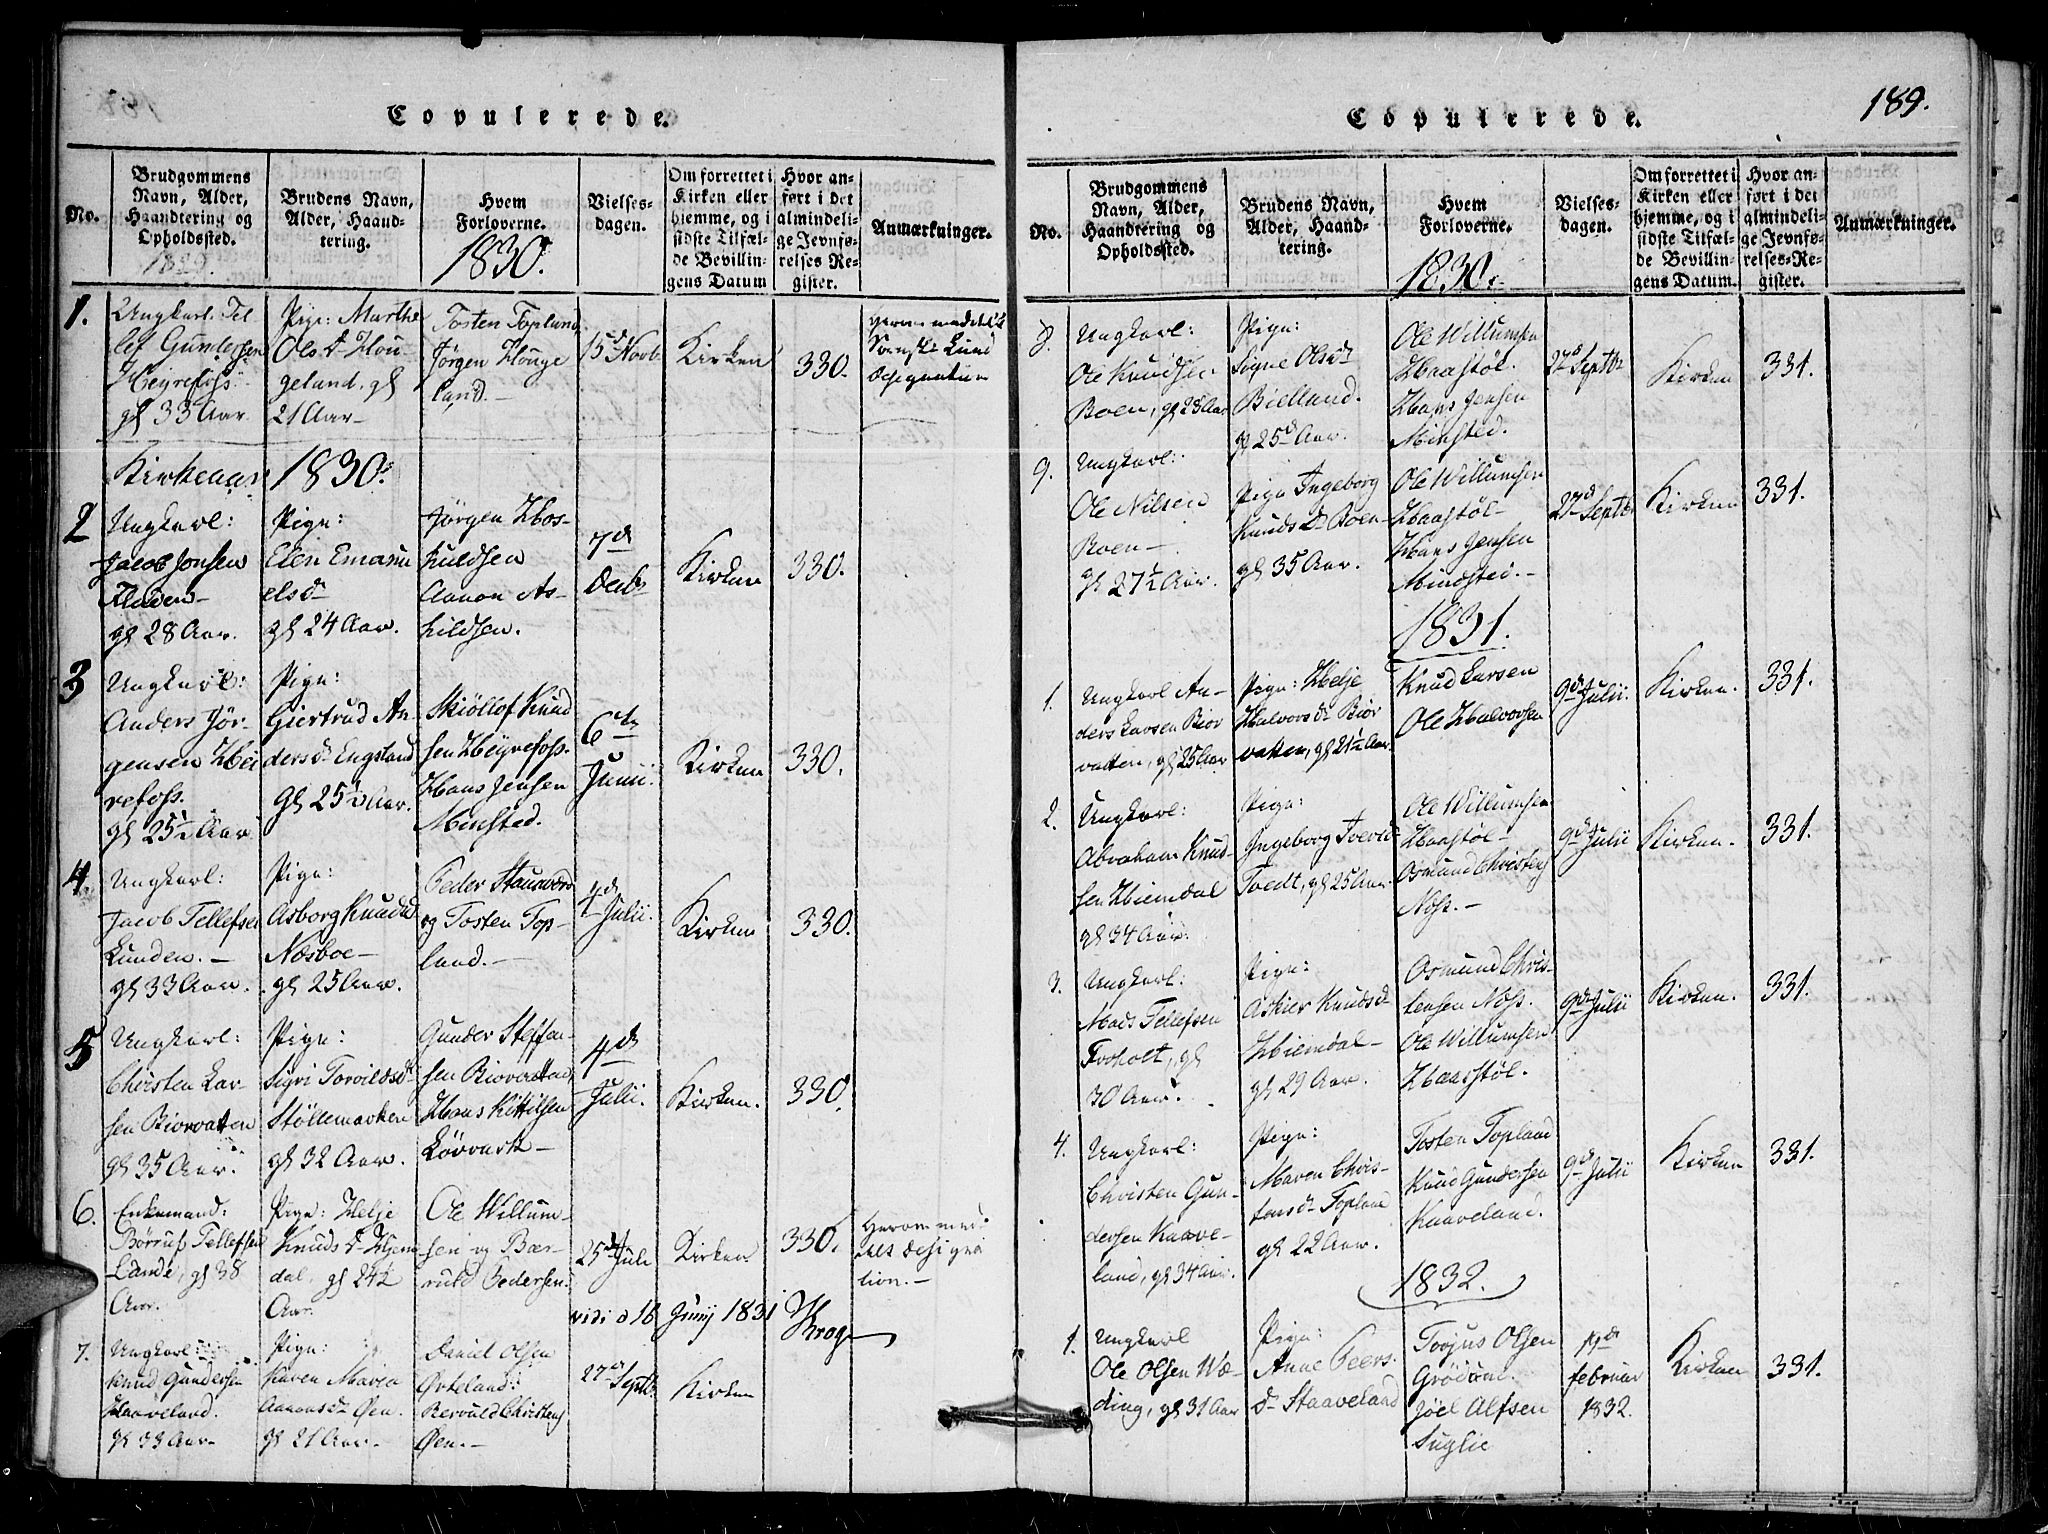 Copulerede.
No.
Brudgommens
Navn, Alder,
Haandtering og
Opholdssted.
Brudens Navn,
Alder, Haand-
tering.
Hvem
Forloverne.
1830.
Vielses-
dagen.
Om forrettet i
Kirken eller
hjemme, og i
sidste Tilfæl-
de Bevillin-
gens Datum
Hvor an-
ført i det
almindeli-
ge Jevnfø-
relses-Re-
gister.
Anmærkninger.
1.
Ungkarl. Tel
lef Gundersen
Heyrefoss
gl 33 Aar
Pige: Marthe
Ols D. Hou-
geland, gl
21 Aar
Tosten Topland
Jørgen Houge
land.
15d Novb
Kirken
330.
Kirkeaar 1830.
2
Ungkarl:
Jacob Jonsen
Flaten
gl 28 Aar.
Pige:
Elen Emanu
elsdr
gl 24 Aar.
Jørgen Hos-
kuldsen
Aanon As-
kildsen.
7de
Decb
Kirken
330.
3
Ungkarl:
Anders Jør-
gensen Hei
refoss.
gl 25½ Aar
Pige:
Giertrud An
dersd. Engsland
gl 25½ Aar.
Skiøllof Knud
sen Heyrefoss.
Hans Jensen
Minsted.
6te
Junii.
Kirken
330.
4.
Ungkarl:
Jacob Tellefsen
Lunden.
gl 33 Aar.
Pige:
Asborg Knudsd
Næsboe
gl 25 Aar.
Peder
og Tosten Top-
land.
4d
Julii.
Kirken
330.
5
Ungkarl:
Christen Lar-
sen Biorvatten
gl 35 Aar.
Pige:
Sigri Torvildsd.
Støllemarken
gl 32 Aar.
Gunder Steffen-
sen Biorvatten
Hans Kittilsen
Løvvask
4de
Julii.
Kirken.
330.
6.
Enkemand:
Børruf Tellefsen
Lande, gl 38
Aar.
Pige: Helje
Knuds D. Hjem
dal, gl 24½
Aar.
Ole Willum-
sen og Bær-
ruld Pedersen.
25d Juli
Kirken
330.
Herom med-
delt desig na
tion.
vidi d 16 Junij 1831 Krog
7.
Ungkarl:
Knud Gundersen
Kaaveland.
gl 33 Aar
Pige:
Karen Maria
Aanonsdr Øen.
gl 21 Aar
Daniel Olsen
Ørteland:
Berruld Christens
Øen.
27d Septb
Kirken
Copulerede.
189.
No.
Brudgommens
Navn, Alder,
Haandtering og
Opholdssted.
Brudens Navn,
Alder, Haand-
tering.
Hvem
Forloverne.
1830.
Vielses-
dagen.
Om forrettet i
Kirken eller
hjemme, og i
sidste Tilfæl-
de Bevillin-
gens Datum.
Hvor an-
ført i det
almindeli-
ge Jevnfø-
relses-Re-
gister.
Anmærkninger.
8.
Ungkarl:
Ole Knudsen
Boen, gl 28 Aar
Pige:
Signe Olsdr
Bielland.
gl 25d Aar.
Ole Willumsen
Haastøl.
Hans Jensen
Minsted.
27d Septbr
Kirken
331.
9.
Ungkarl:
Ole Nilsen
Boen
gl 27½ Aar.
Pige Ingeborg
Knuds D. Boen
gl 35 Aar.
Ole Willumsen
Haastøl
Hans Jensen
Mindsted.
27d Septb
Kirken
331.
1831.
1.
Ungkarl An-
ders Larsen Bior
vatten, gl 25 Aar
Pige: Helje
Halvors D. Bior
vatten, gl 21½ Aar.
Knud Larsen
Ole Halvorsen
9d Julii
Kirken.
331.
2.
Ungkarl:
Abraham Knud-
sen Hiemdal
gl 34 Aar.
Pige:
Ingeborg
Tvedt, gl 25 Aar.
Ole Willumsen
Haastøl
Osmund Christens
Noss.
9d Julii
Kirken.
331.
3.
Ungkarl:
Mads Tellefsen
Troholt, gl
30 Aar.
Pige:
Askier Knudsd
Hiemdal
gl 29 Aar.
Osmund Chris-
tensen Noss.
Ole Willumsen
Haastøl.
9d Julii
Kirken.
331.
4.
Ungkarl:
Christen Gun-
dersen Kaave-
land, gl 34 Aar.
Pige:
Maren Chris-
tens D. Topland
gl 22 Aar.
Tosten Topland
Knud Gundersen
Kaaveland.
9d Julii
Kirken
331.
1832.
1.
Ungkarl
Ole Olsen Wæ-
ding, gl 31 Aar
Pige:
Anne Peers
D. Staaveland
Torjus Olsen
Grødum.
Joel Alfsen
Suglie
19d
februar
1832.
Kirken
331.